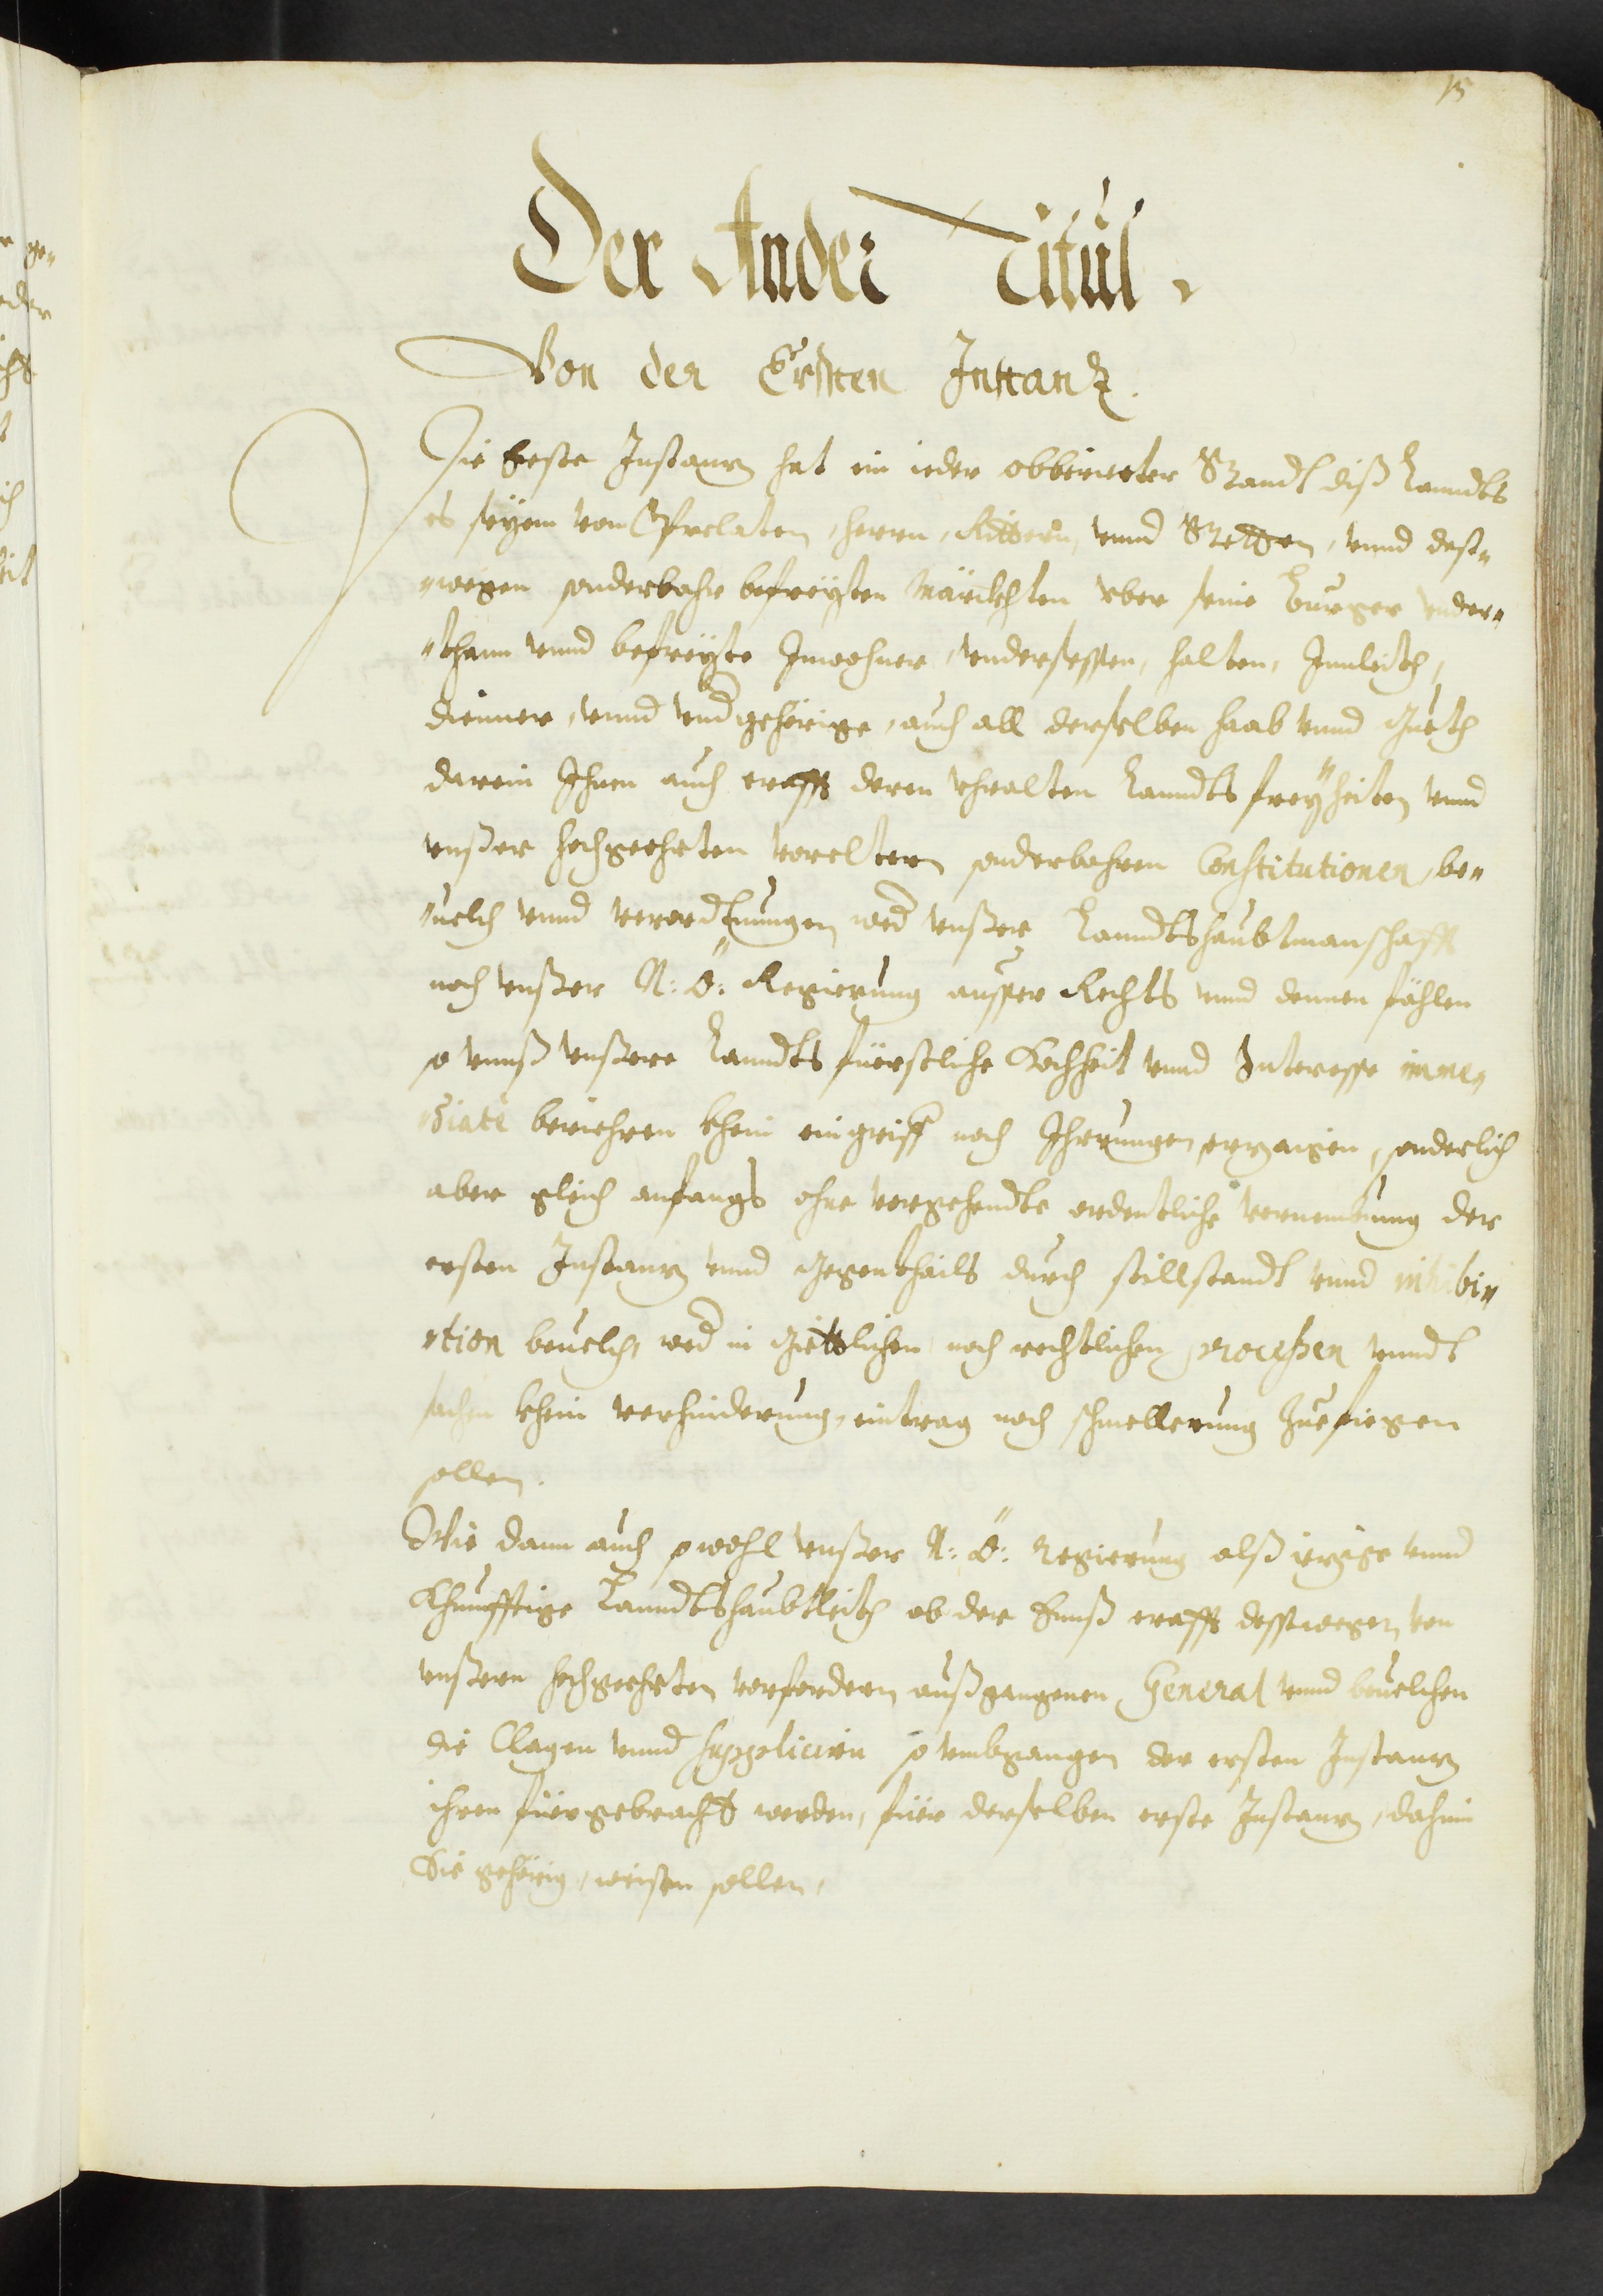 15
Der Ander Titul.
Von der Ersten Instanz.
Die Erste Instanz hat ein ieder obberierter Standt diß Lanndts
es seyen von Prelaten, Herrn, Rittern, vnnd Stetten, vnnd dest„
„wegen sonderbahr befreyten Märckhten vber seine Burger vnder„
„thann vnnd befreyte Inwohner, vndersessen, halten, Innleith,
diennner, vnnd vndgehörige, auch all derselben haab vnnd Gueth
darein Ihnen auch crafft deren vhralten Lanndts freyheiten vnnd
vnßer hochgeehrten Voreltern sonderbahren Constitutionen, be„
„uelch vnnd verordnungen wed vnßer Lanndtshaubtmanschafft
noch vnßer N: Ö: Regierung ausser Rechts vnnd dennen fählen
so vnnß vnßere Lanndts fürstliche Hochheit vnnd Interesse imme„
„diatè beriehren khein eingriff noch Ihrrungen erzaigen, sonderlich
aber gleich anfangs ohne vorgehendte ordentliche vernembung der
ersten Instanz vnnd Gegenthails durch stillstandt vnnd inhibi„
„tion beuelch, wed in Giettlichen noch rechtlichen processen vnndt
sachen khein verhinderung, eintrag noch schmellerung Zuefiegen
sollen.
Wie dann auch sowohl vnßer N: Ö: Regierung alß iezige vnnd
Khunfftige Lanndtshaubtleith ob der Ennß crafft desswegen von
vnßern hochgeehrten vorfordern außgangenen General vnnd beuelchen
die Clagen vnnd Suppliciren so vmbgangen der ersten Instanz
ihnen fürgebracht werden, für derselben erste Instanz, dahin
Sie gehörig, weisen sollen.